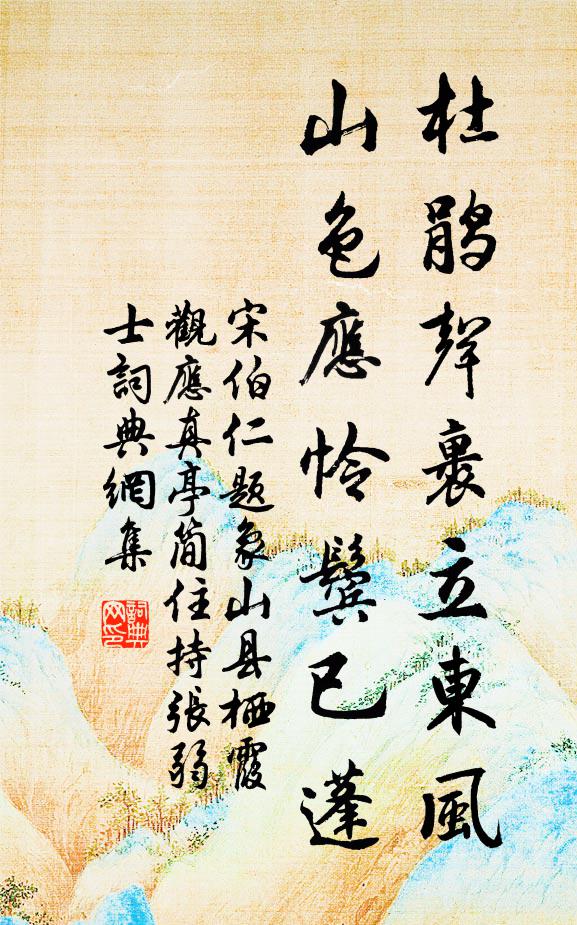 杜鹃聲裏立東風
山色應怜鬓已蓬
宋伯仁题象山县栖霞
觀應真亭簡住持張弱
士詞典網集
詞典
网印